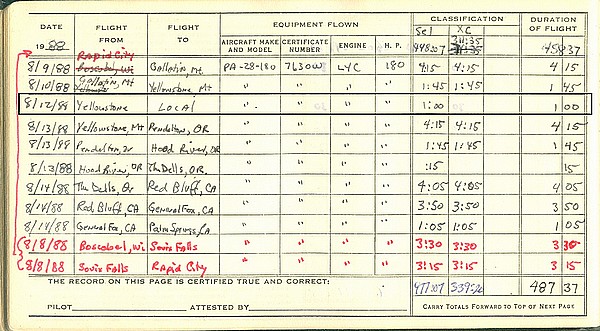 DATE FLIGHT FROM FLIGHT TO EQUIPMENT FLOWN CLASSIFICATION DURATION OF FLIGHT
1988 AIRCRAFT MAKE AND MODEL CERTIFICATE NUMBER ENGINE H. P. Sel XC
448:07 458 37
Rapid City
8/9/88 Boscobel, Wi Gallatin, Mt PA-28-180 7630W LYC 180 4:15 4:15 4 15
8/10/88 Gallatin, Mt Yellowstone, Mt " " " " 1:45 1:45 1 45
8/12/88 Yellowstone Local " " " " 1:00 1 00
8/13/88 Yellowstone, Mt Pendleton, OR " " " " 4:15 4:15 4 15
8/13/88 Pendelton, Or Hood River, OR " " " " 1:45 1:45 1 45
8/13/88 Hood River, OR The Dells, Or " " " " :15 15
8/14/88 The Dells, Or Red Bluff, CA " " " " 4:05 4:05 4 05
8/14/88 Red Bluff, CA General Fox, CA " " " " 3:50 3:50 3 50
8/14/88 General Fox, CA Palm Springs, CA " " " " 1:05 1:05 1 05
8/8/88 Boscobel, Wi Soux Falls " " " " 3:30 3:30 3 30
8/8/88 Soux Falls Rapid City " " " " 3:15 3:15 3 15
THE RECORD ON THIS PAGE IS CERTIFIED TRUE AND CORRECT: 487 37
PILOT ATTESTED BY CARRY TOTALS FORWARD TO TOP OF NEXT PAGE